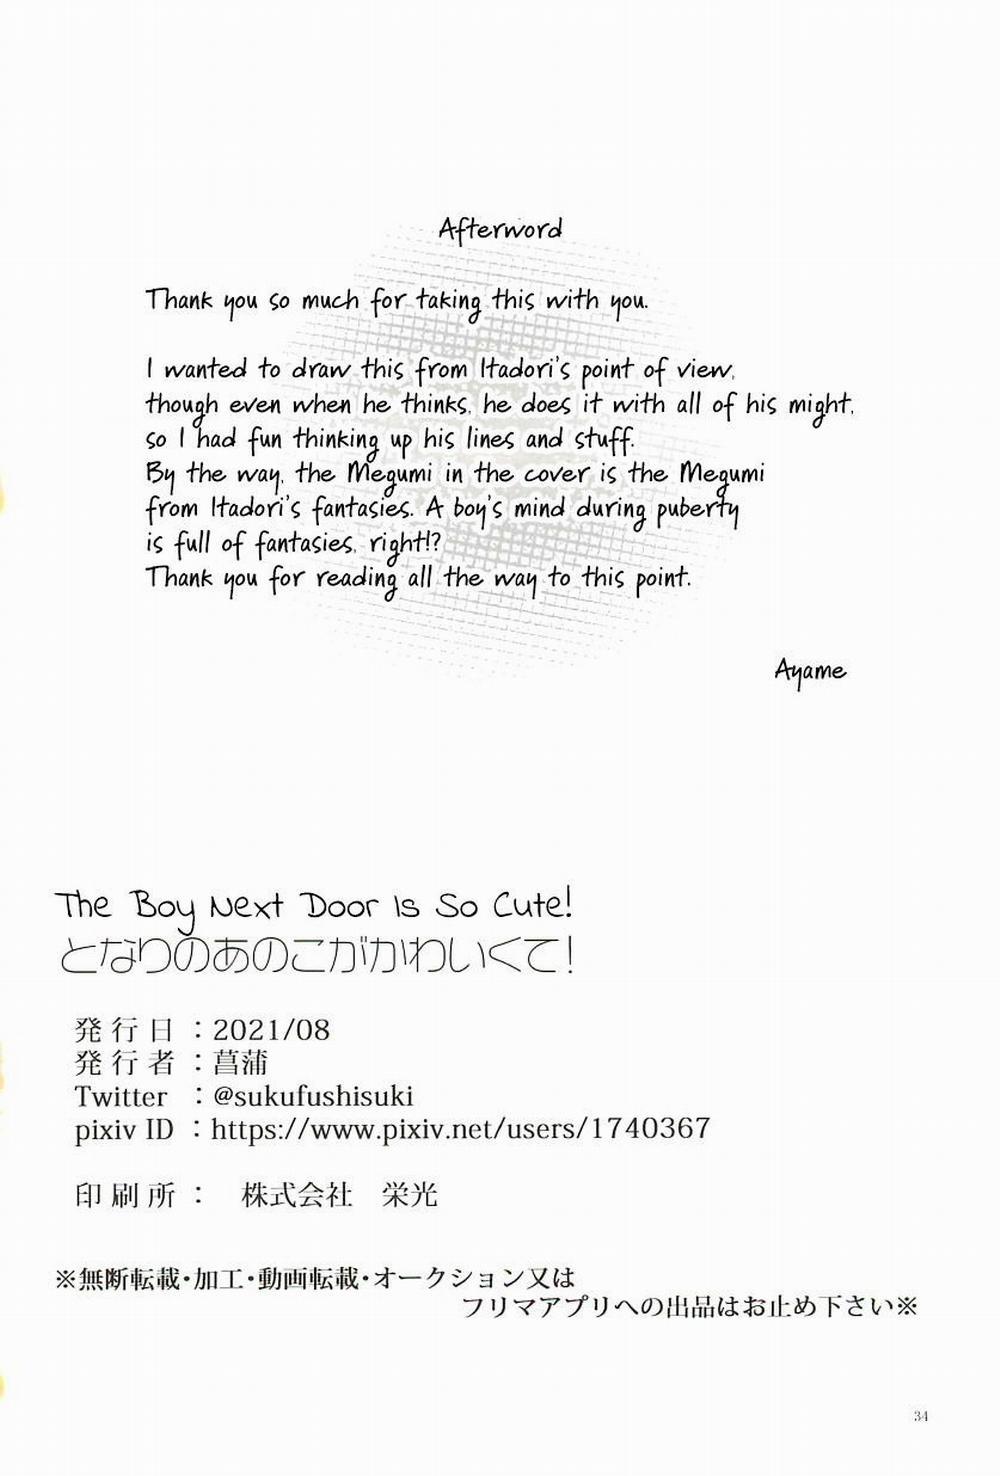 Afterword
Thank you so much for taking this with you.
I wanted to draw this from Itadori's point of view,
though even when he thinks, he does it with all of his might,
so I had fun thinking up his lines and stuff.
By the way, the Megumi in the cover is the Megumi
from Itadori's fantasies. A boy's mind during puberty
is full of fantasies, right!?
Thank you for reading all the way to this point.
Ayame
The Boy Next Door Is So Cute!
となりのあのこがかわいくて!
発行日:2021/08
発行者:菖蒲
Twitter :@sukufushisuki
pixiv ID :https://www.pixiv.net/users/1740367
印刷所: 株式会社 栄光
※無断転載・加工・動画転載・オークション又は
フリマアプリへの出品はお止め下さい※
34